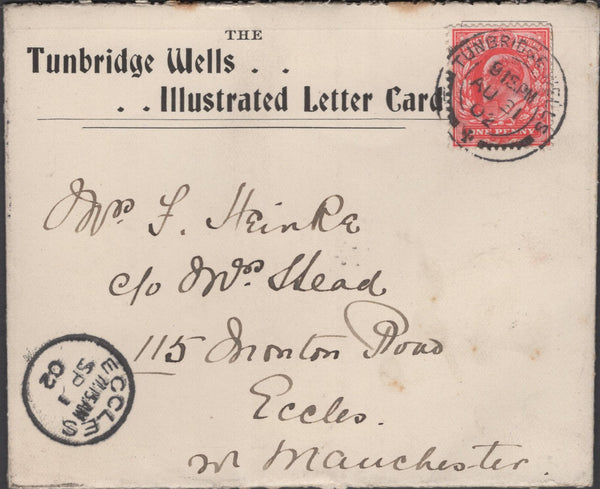 THE
Tunbridge Wells . .
. . Illustrated Letter Card
TUNBRIDGE WELLS
9 15 PM
AU 31
02
ONE PENNY
Mrs F. Heinke
c/o Mrs Head
115 Monton Road
Eccles.
nr Manchester.
ECCLES
7 15 AM
SP 1
02